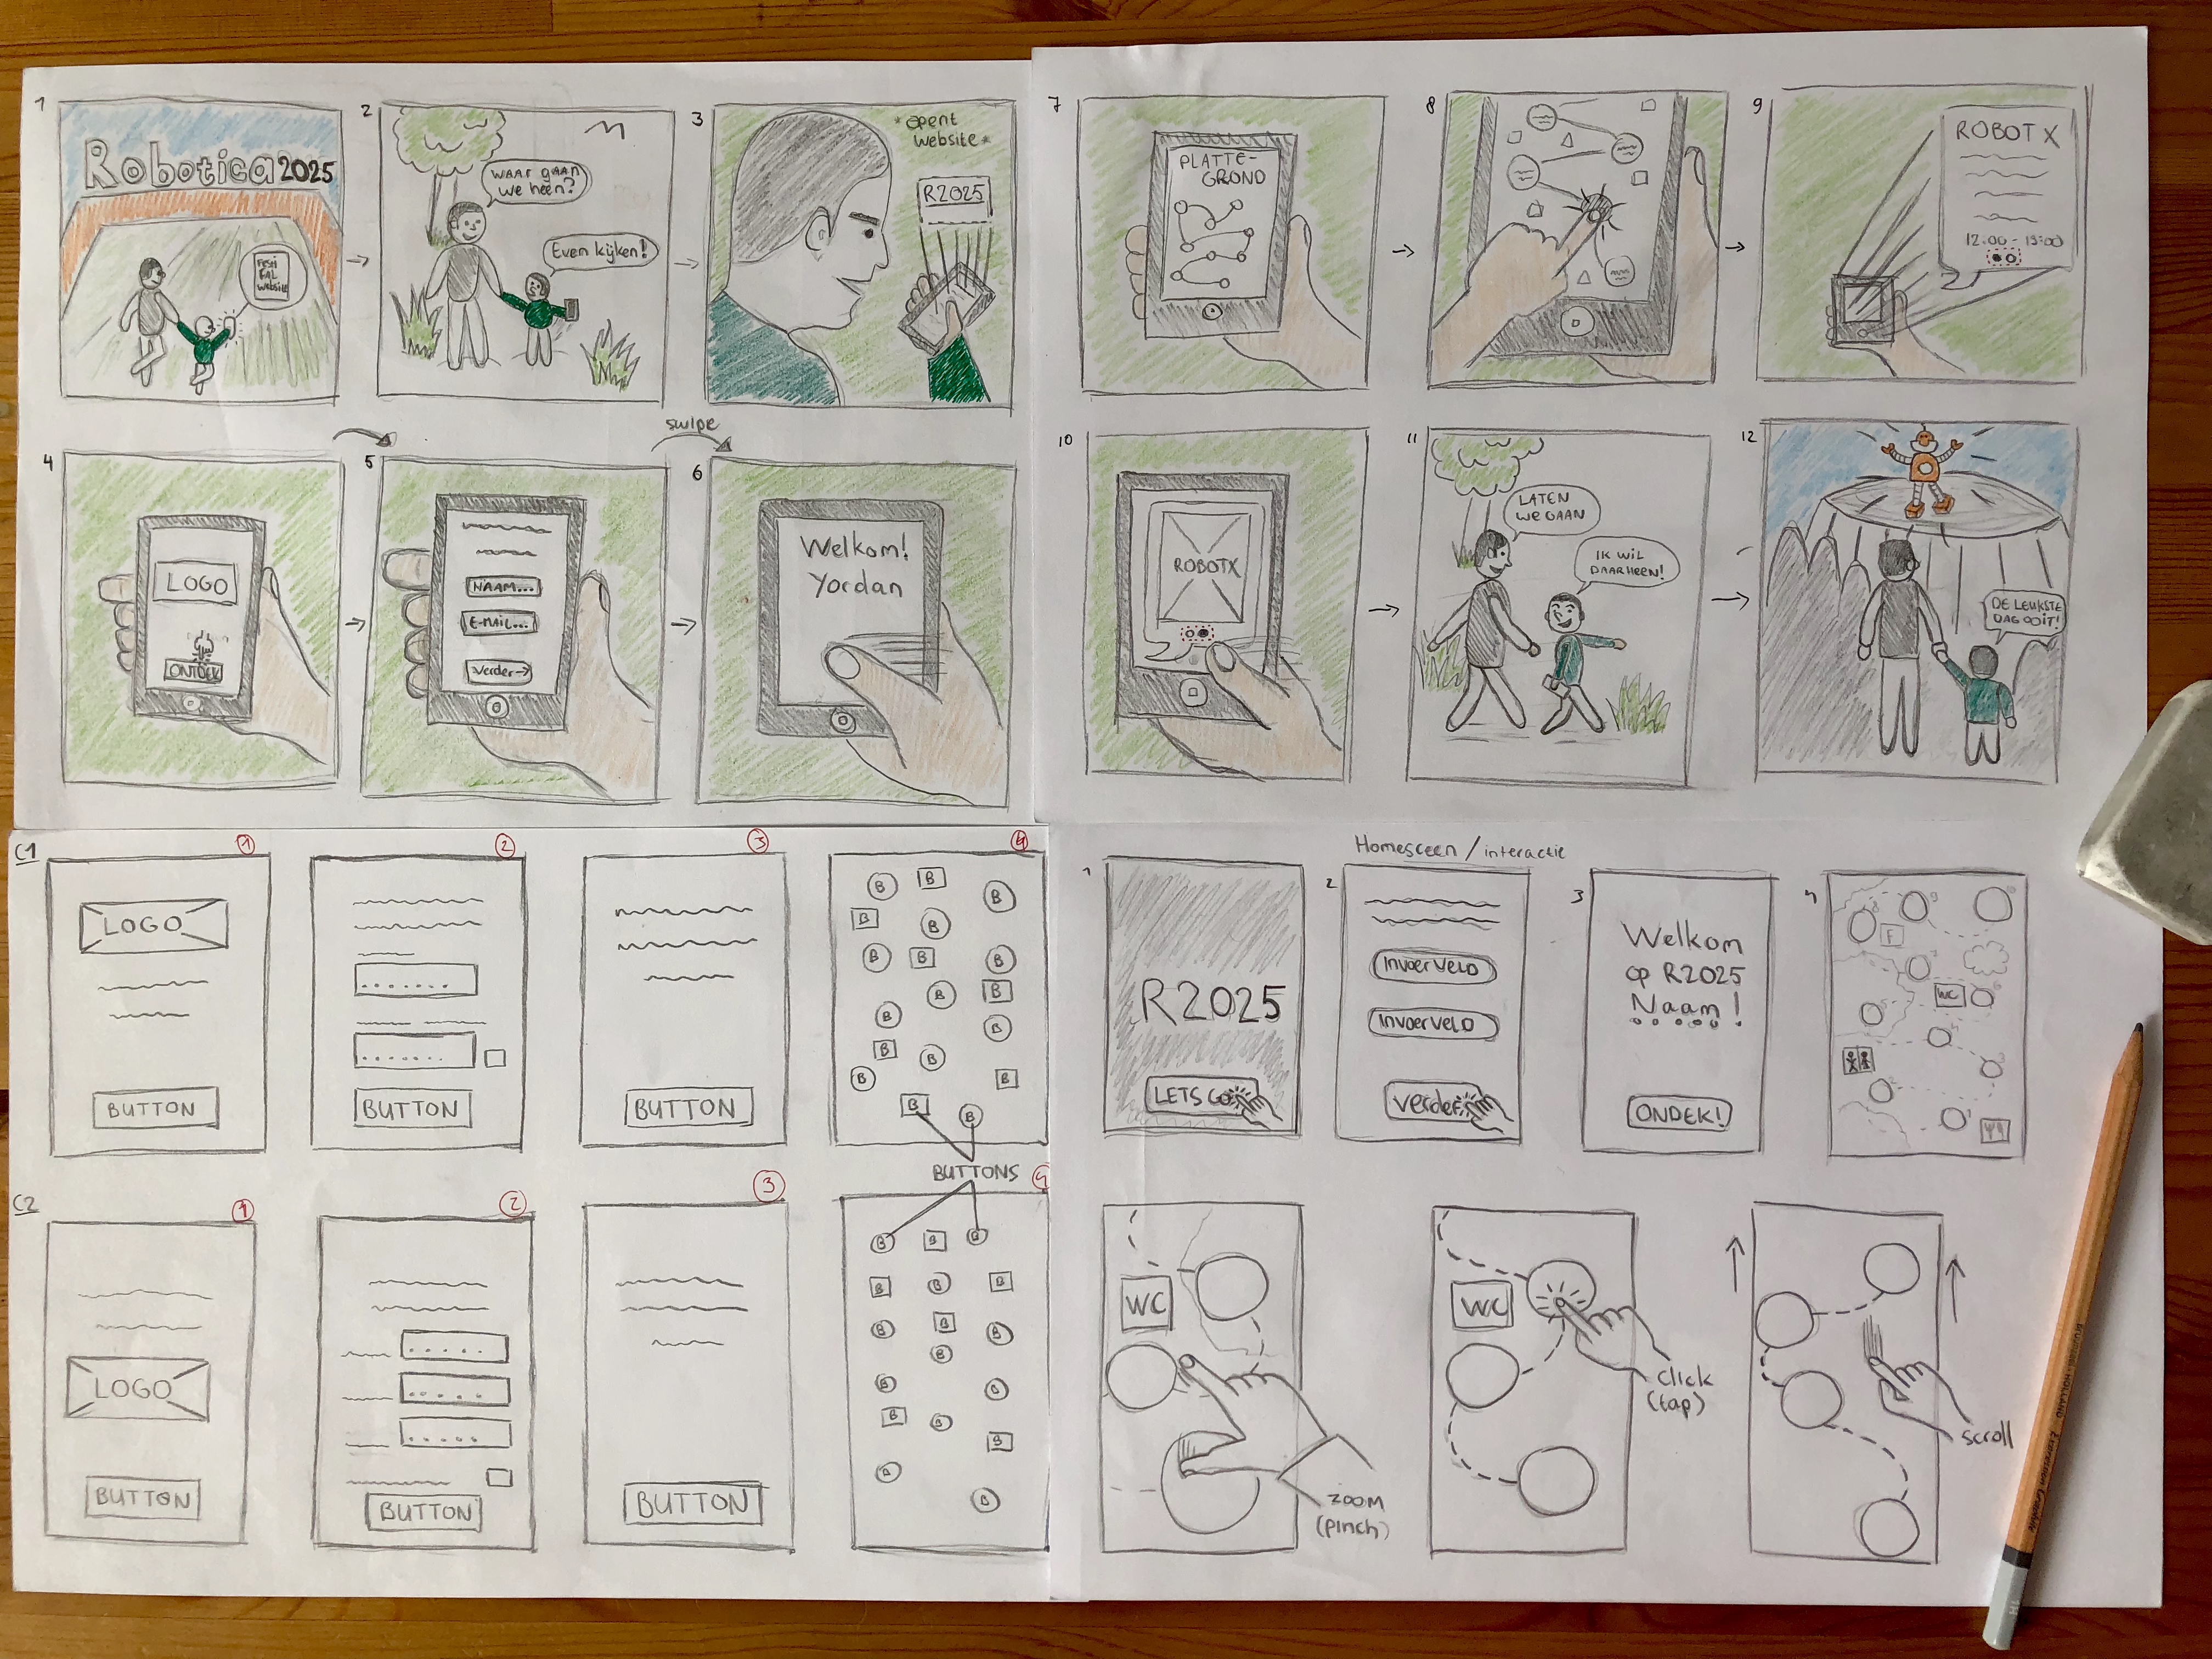 1
Robotica 2025
FESTI
VAL
website
2
WAAR GAAN
WE HEEN?
Even kijken!
3
*opent
website*
R2025
4
LOGO
ONTDEK
5
NAAM...
E-MAIL...
Verder→
swipe
6
Welkom!
Yordan
7
PLATTE-
GROND
8
9
ROBOT X
12:00 - 13:00
10
ROBOTX
11
LATEN
WE GAAN
IK WIL
DAARHEEN!
12
DE LEUKSTE
DAG OOIT!
C1
1
LOGO
BUTTON
2
BUTTON
3
BUTTON
4
B B B
B B
B B B
B B
B B
B B
B B
B B
BUTTONS
C2
1
LOGO
BUTTON
2
BUTTON
3
BUTTON
4
B B B
B B B
B B B
B
B B
B B
B
B
B
Homesceen / interactie
1
R2025
LETS GO
2
invoerveld
invoerveld
verder
3
Welkom
op R2025
Naam!
ONDEK!
4
F
WC
WC
zoom
(pinch)
WC
click
(tap)
scroll